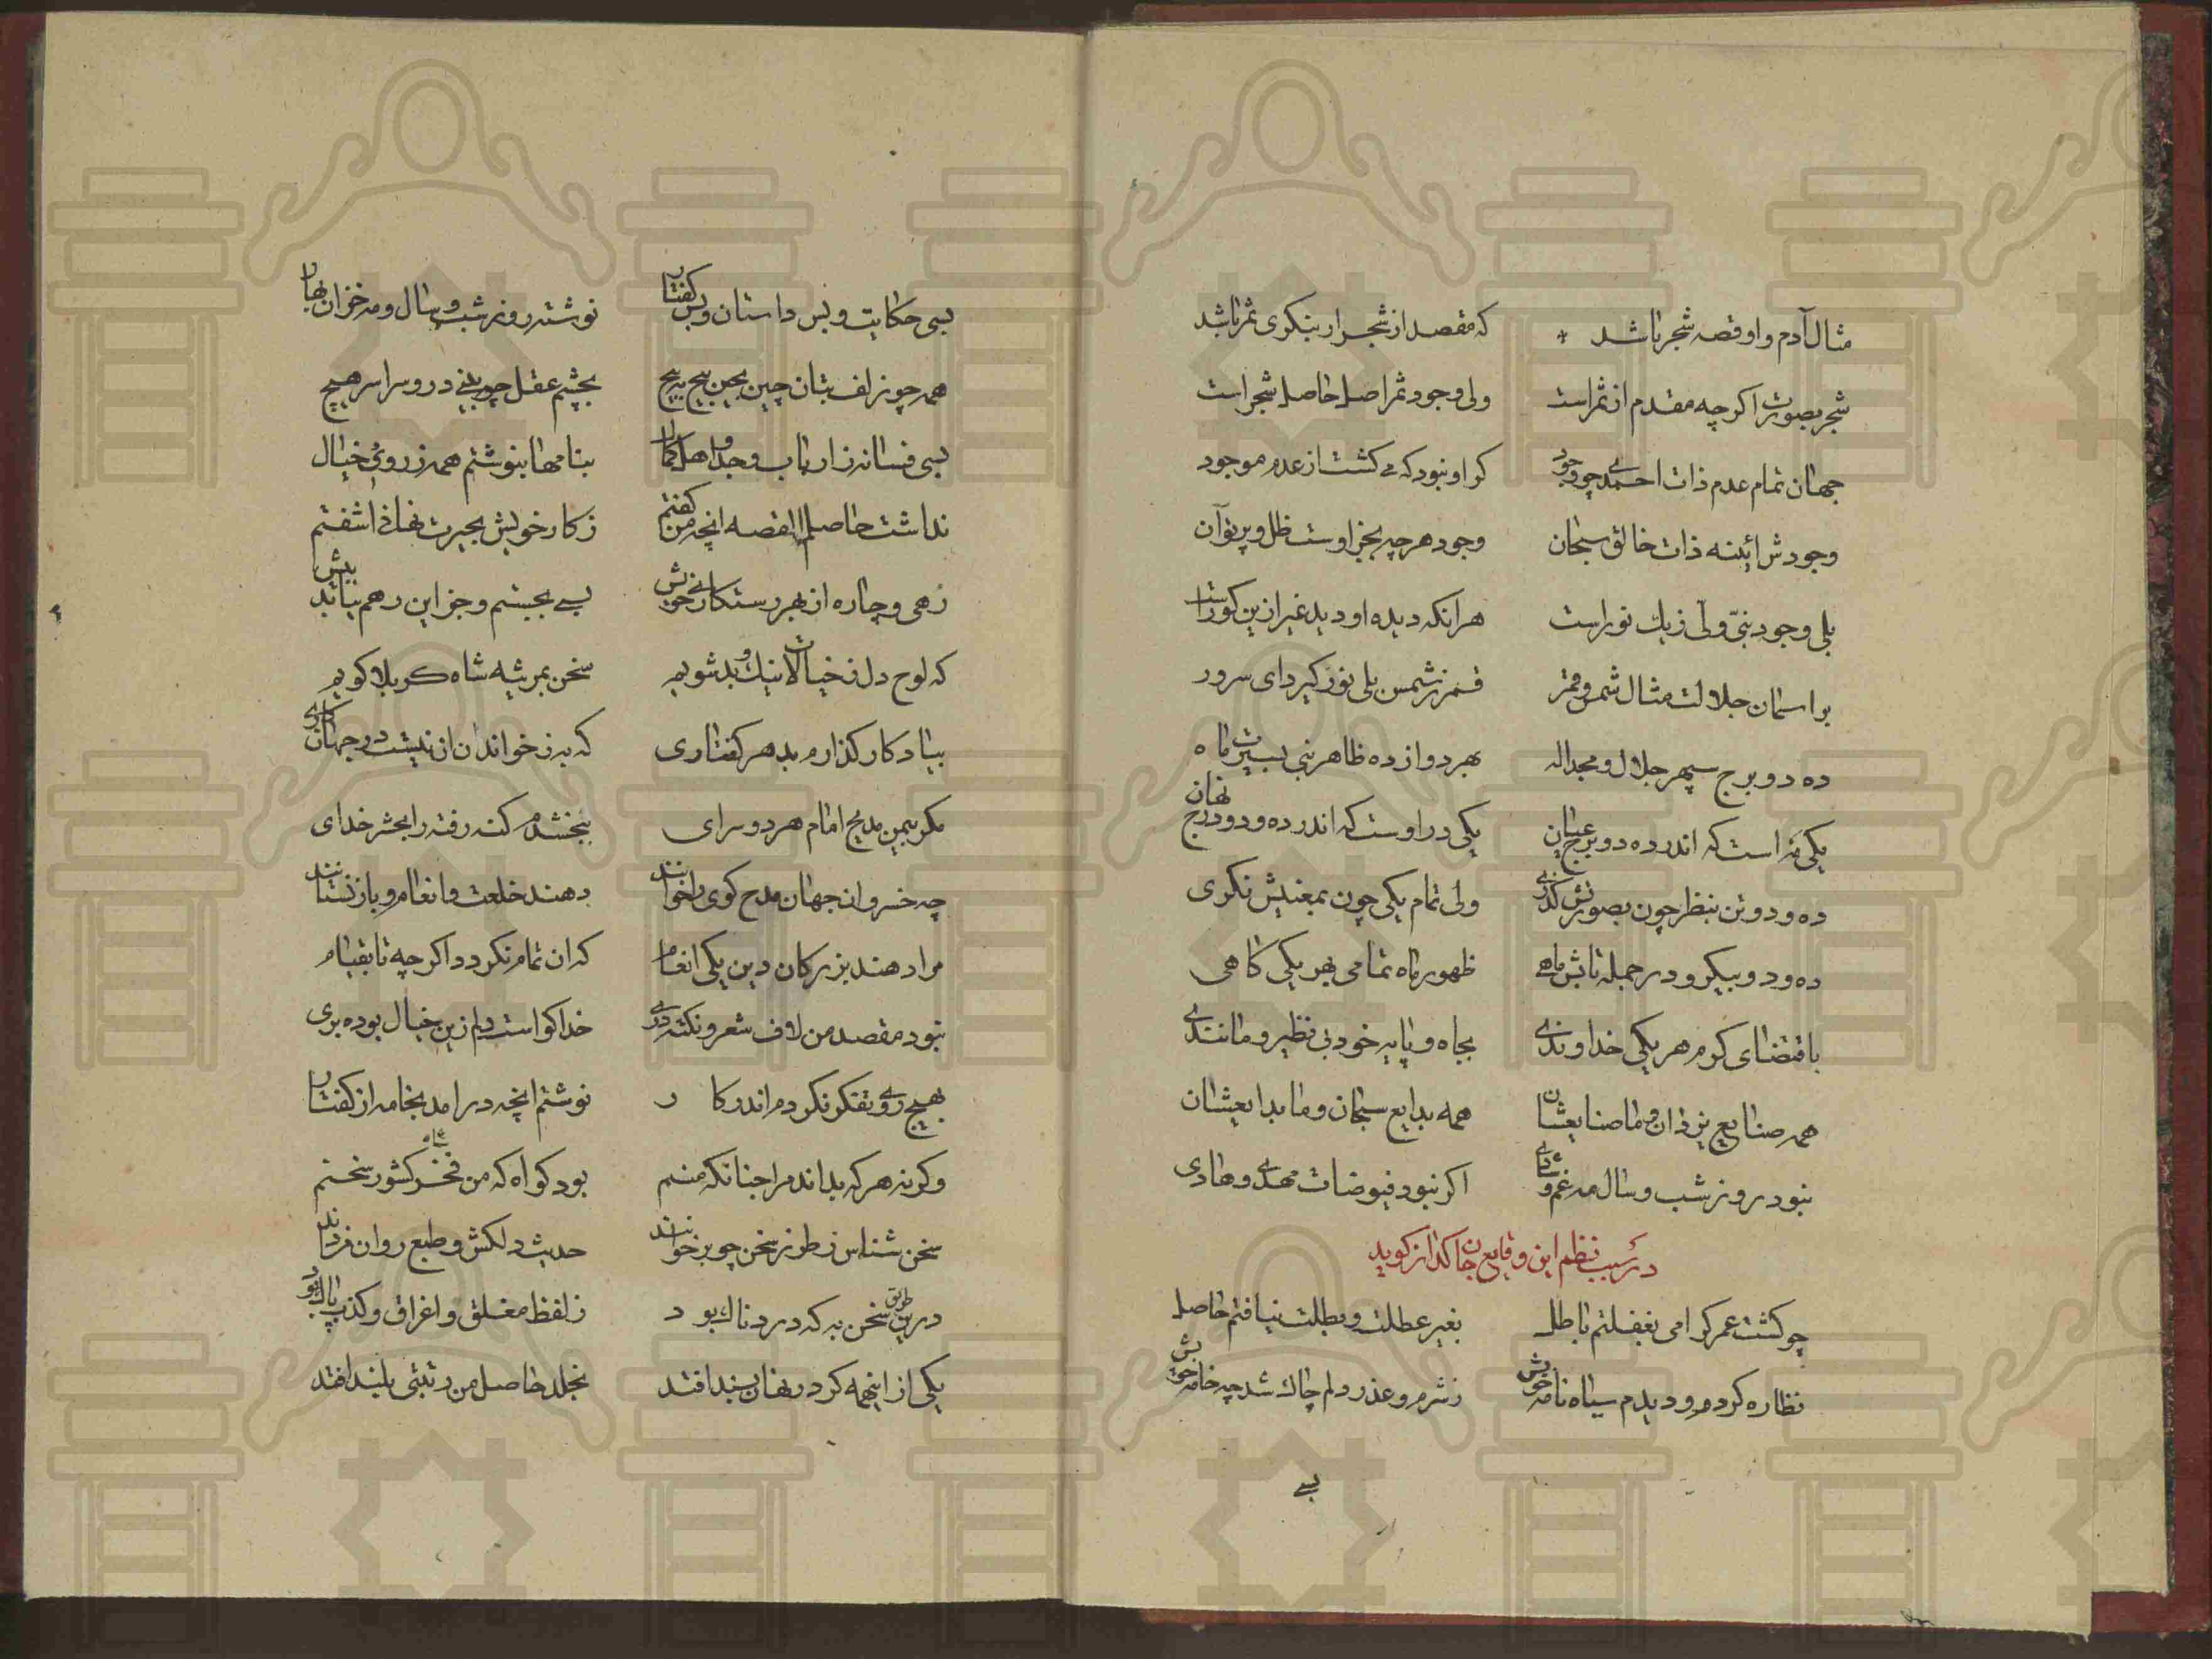 مثال آدم و او قصه شجر باشد * که مقصد از شجر ار بنکری ثمر باشد
شجر بصورت اکرچه مقدم از ثمر است ولی وجود ثمر اصل حاصل شجر است
جهان تمام عدم ذات احمدی چو وجود کر او نبود که می کشت از عدم موجود
وجودش ائینه ذات خالق سبحان وجود هرچه بجز اوست ظل و پرتو آن
بلی وجود نبی و ولی ز یک نور است هرانکه دیده او دید غیر ازین کور است
بر اسمان جلالت مثال شمس و قمر قمر ز شمس بلی نور کیرد ای سرور
ده دو برج سپهر جلال و مجد اله بهر دوازده ظاهر نبی بسیرت ماه
یکی مه است که اندر ده دو برج عیان یکی در اوست که اندر ده و دو درج نهان
ده و دو تن بنظر چون بصورتش کذری ولی تمام یکی چون بمعنیش نکری
ده و دو پیکر و در جمله تابش ماهی ظهور ماه تمامی بهر یکی کاهی
باقتضای کرم هر یکی خداوندی بجاه و پایه خود بی نظیر و مانندی
همه صنایع یزدان و ما صنایعشان همه بدایع سبحان و ما بدایعشان
نبود روز شب و سال مه غم و شادی اکر نبود فیوضات مهدی و هادی
در سبب نظم این وقایع جان کداز کوید
چو کشت عمر کرامی بغفلتم باطل بغیر عطلت و بطلت نیافتم حاصل
نظاره کردم و دیدم سیاه نامه خویش ز شرم و عذر دلم چاک شد چه خامه خویش
بسی
بسی حکایت و بس داستان و بس کفتار نوشته روز شب و سال و مه خزان بهار
همه چو زلف بتان چین بچین پیچ به پیچ بچشم عقل چو بینی درو سراسر هیچ
بسی فسانه ز ارباب وجد و اهل کمال بنامها بنوشتم همه ز روی خیال
نداشت حاصل القصه انچه من کفتم ز کار خویش بحیرت نهانی اشفتم
رهی و چاره از بهر رستکاری خویش بسی بجستم و جز این رهم نیاند پیش
که لوح دل ز خیالات نیک و بد شویم سخن بمرثیه شاه کربلا کویم
بیادکار کذارم بدهر کفتاری که به ز خواندن ان نیست در جهان کاری
مکر بیمن مدیح امام هر دو سرای ببخشدم کنه رفته را بحشر خدای
چه خسروان جهان مدح کوی را خوانند دهند خلعت و انعام و باز نستانند
مرا دهند بزرکان دین یکی انعام که ان تمام نکردد اکرچه تا بقیام
نبود مقصد من لاف شعر و نکته دری خدا کواست دلم زین خیال بوده بری
بهیچ روی تفکر نکردم اندر کار نوشتم انچه در امد بخامه از کفتار
وکرنه هرکه بداند مرا چنانکه منم بود کواه که من فخر کشور سخنم
سخن شناس ز طرز سخن چو برخواند حدیث دلکش و طبع روان فرد داند
درین طریق سخن به که دردناک بود ز لفظ مغلق و اغراق و کذب پاک بود
یکی از اینهمه کر در نهان پسند افتد بخلد حاصل من رتبتی بلند افتد